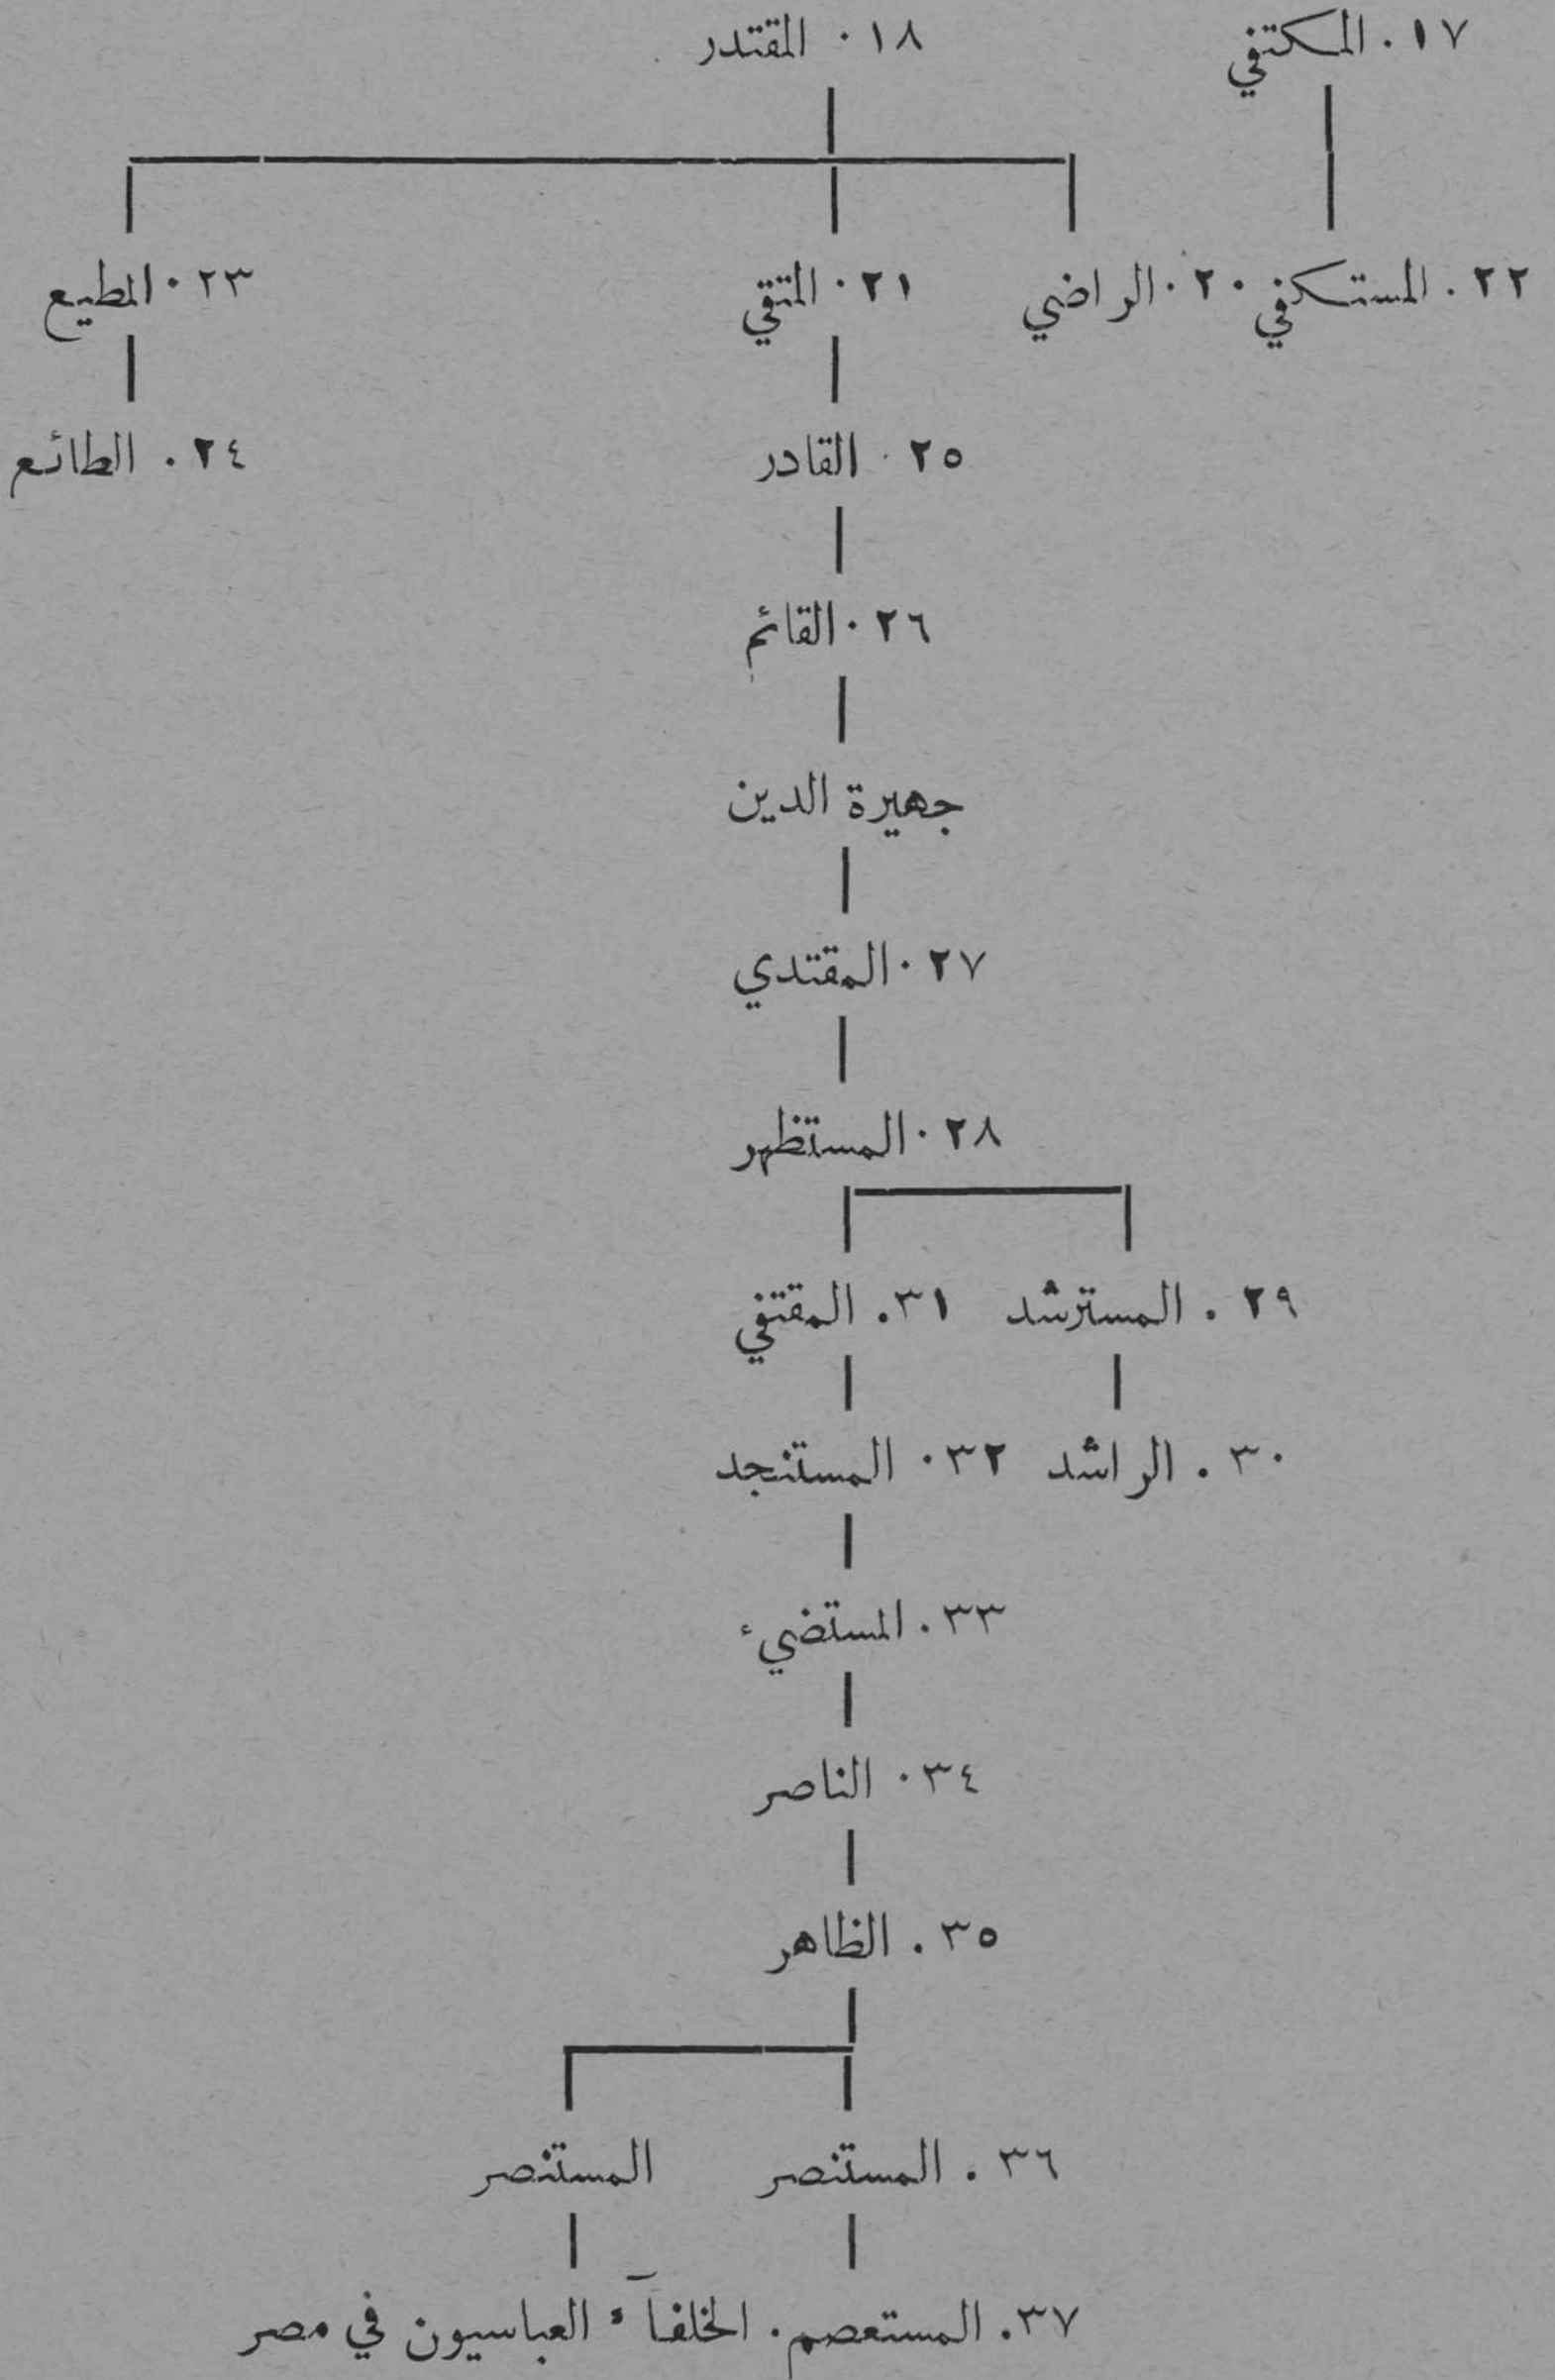 ١٧. المكتفي ١٨. المقتدر
٢٢. المستكفي ٢٠. الراضي ٢١. المتقي ٢٣. المطيع
٢٥. القادر ٢٤. الطائع
٢٦. القائم
جهيرة الدين
٢٧. المقتدي
٢٨. المستظهر
٢٩. المسترشد ٣١. المقتفي
٣٠. الراشد ٣٢. المستنجد
٣٣. المستضيء
٣٤. الناصر
٣٥. الظاهر
٣٦. المستنصر المستنصر
٣٧. المستعصم. الخلفآء العباسيون في مصر